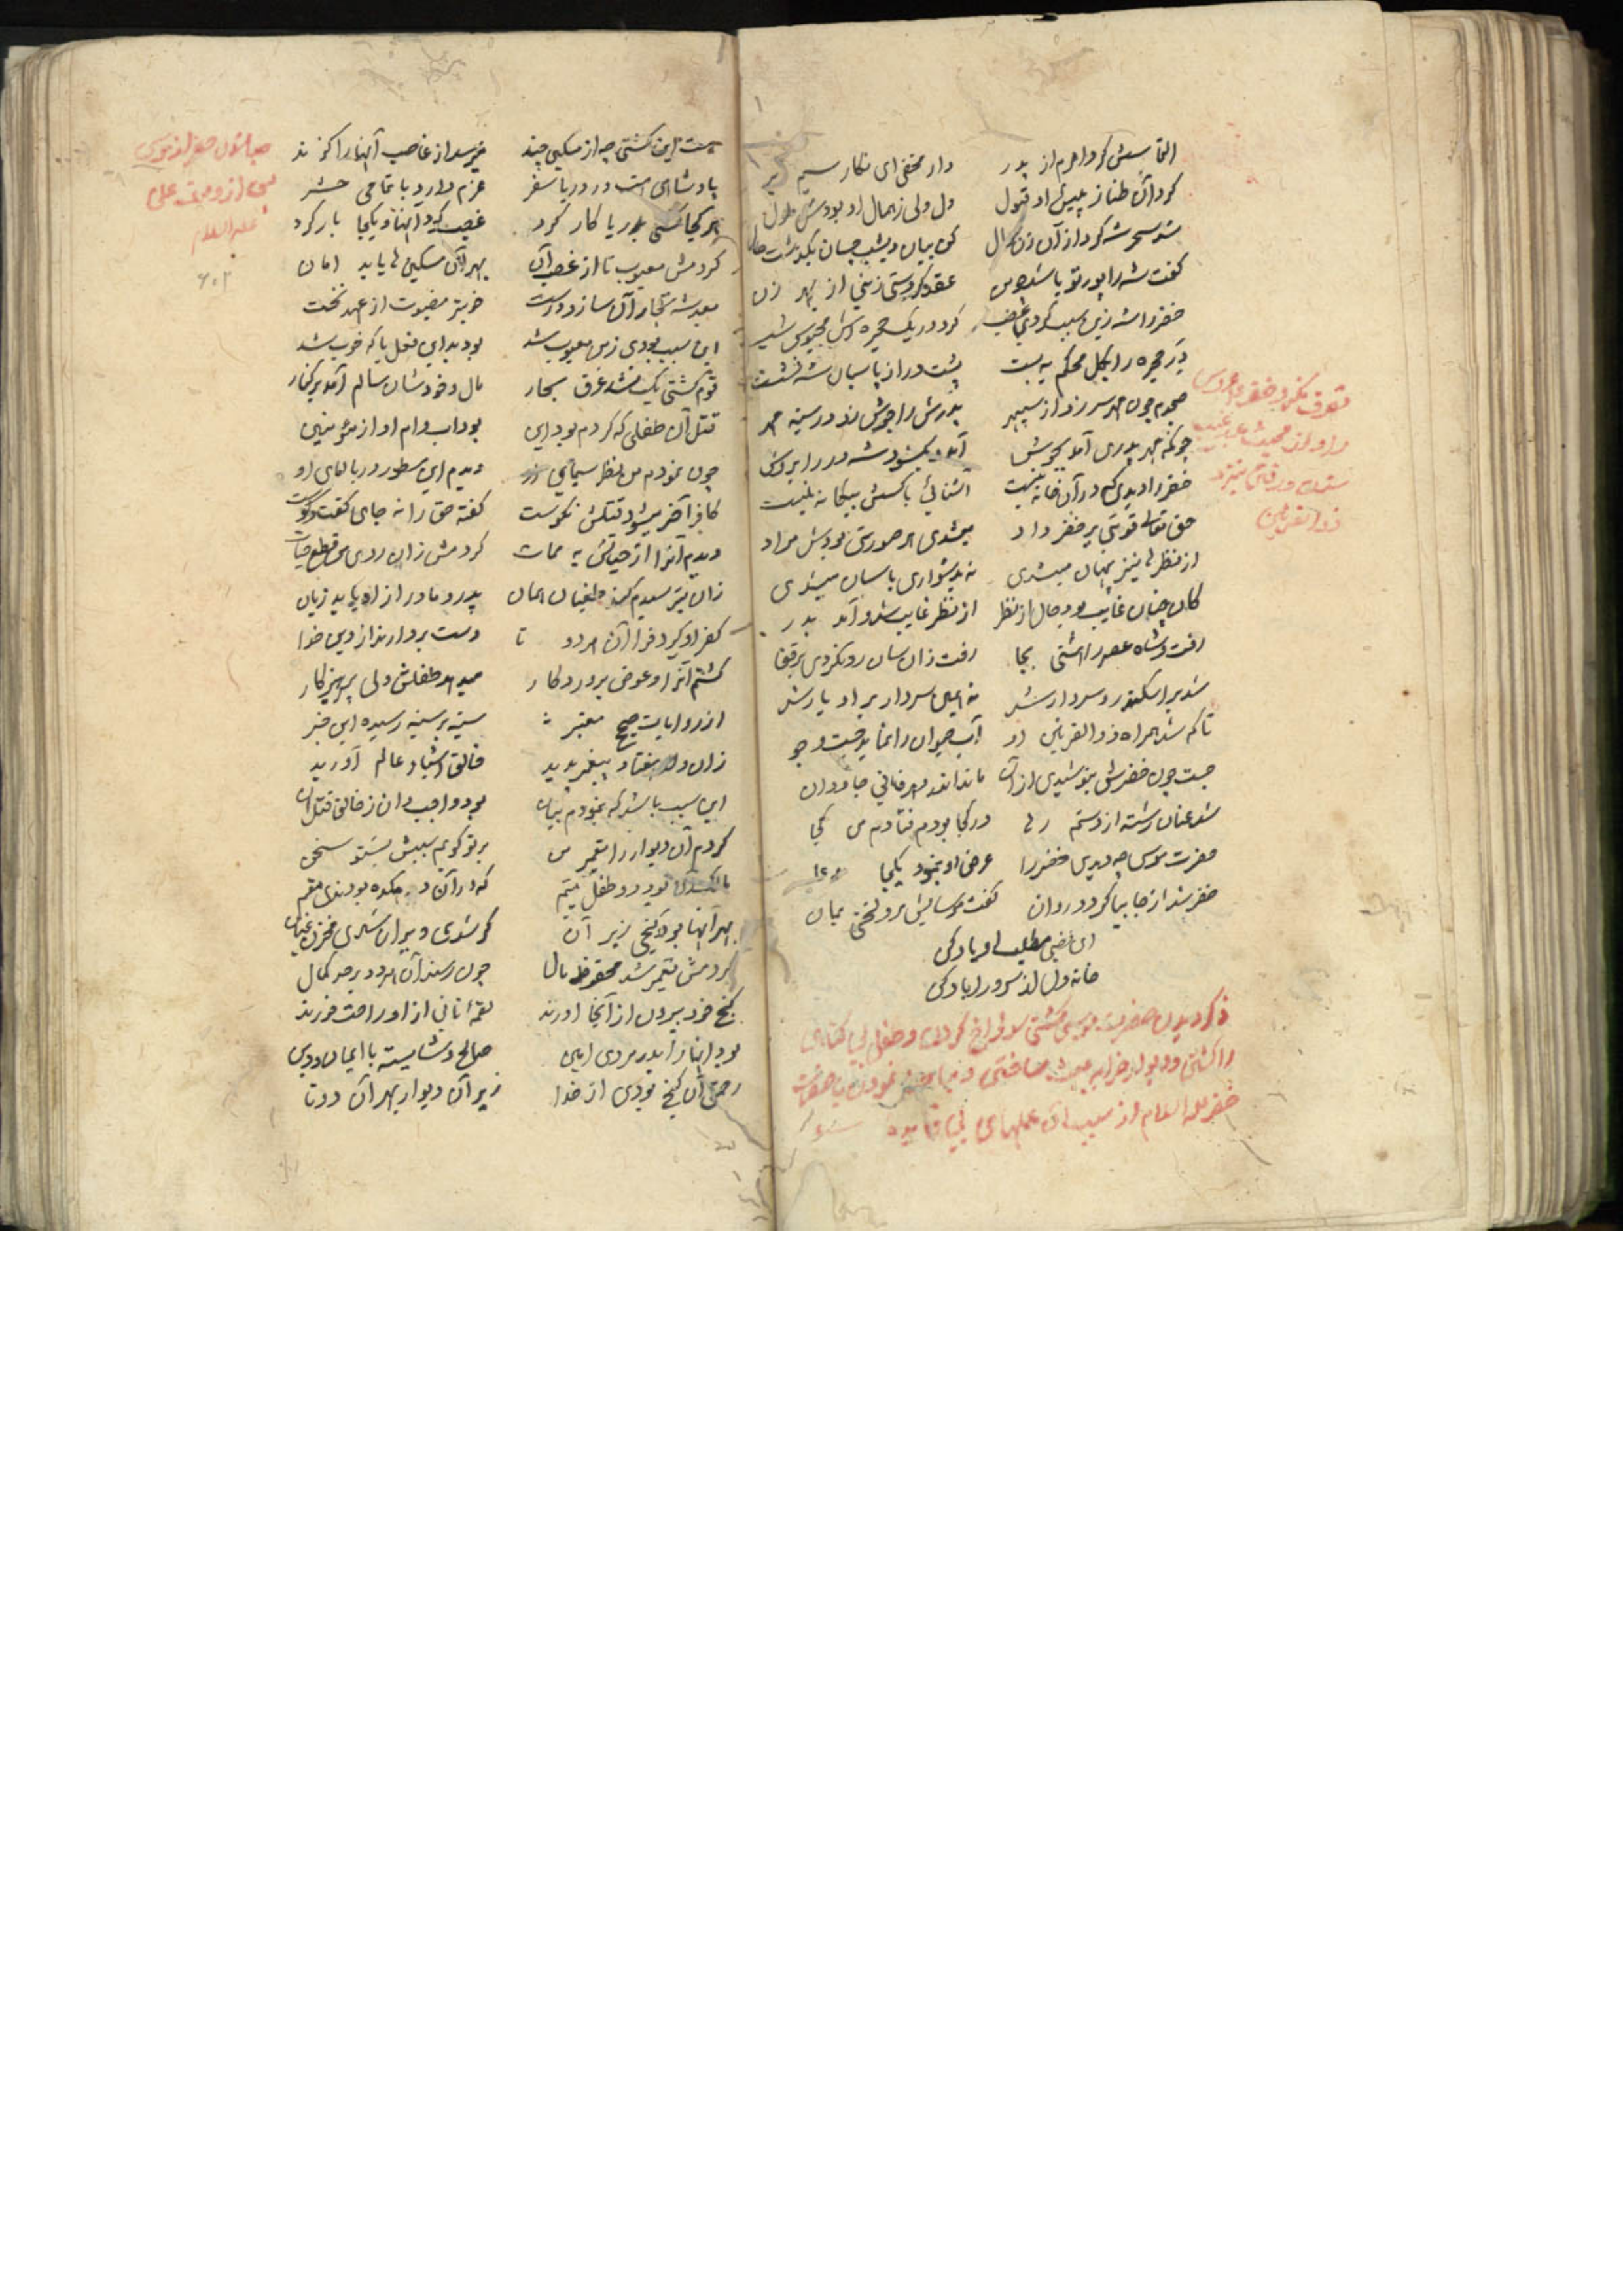 التماسش کرد اهرم از پدر دار مخفی ای نکار سیم بر
کرد آن طناز پیش او قبول دل ولی زاهمال او بودش ملول
شد سحر شه کرد از آن زن سؤال کن بیان دیشب چسان بگذشت حال
کفت شه را پور تو باشد عقد کردستی زنی از بهر زن
خضر را شه زین سبب کردی غضب کرد در یک حجره اش محبوس
در حجره را بکل محکم به بست پشت در از پاسبان شه نشست
صبحدم چون مهر سر زد از سپهر پدرش را جوش زد در سینه مهر
چونکه مهر پدری آمد بجوش آمد بکشود شه در را
خضر را دیدی که در آن خانه نیست
حق تعالی قوتی بر خضر داد میشدی هر صورتی بودش مراد
از نظر نیز پنهان میشدی نه بدشواری باسان میشدی
کان چنان غایب بود حال از نظر از نظر غایب شد و آمد بدر
رفت و شاه عصر را هشتی بجا رفت زان سان رو نکردی بر قفا
شد بر اسکندر و سردار شد نه همین سردار بر او یار شد
تا که شد همراه ذوالقرنین او آب حیوان را نماید جست و جو
جست چون خضرش بنوشیدی از آن ماند اندر دهر فانی جاودان
شد عنان رشته از دستم رها در کجا بودم فتادم من کجا
حضرت موسی چه دیدی خضر را عرض او بنمود یکجا
خضر شد از جا بپا کرد و روان کفت موسایش مرو لختی بمان
ای مطلب را یاد کن
خانه دل از سرور اباد کن
ذکر دیدن حضرت موسی کشتی سوراخ کردن و طفل بی کناه
را کشتن و دیوار خرابه ساختن
خضر علیه السلام از سبب آن عملهای
تصرف نکردن خضر عروس
را و از غیب
شدن و رفتن نزد
ذوالقرنین
هست این کشتی چه از مسکین چند میرسد از غاصب آنها را کزند
پادشاهی هست در دریا سفر عزم دارد با تمامی حشر
هر کجا کشتی بدریا کار کرد غصب کرد آنها و یکجا بار کرد
کردمش معیوب تا از غصب آن بهر آن مسکین بیاید امان
بعد شه نجار آن سازد درست خوبتر مضبوت از عهد نخست
این سبب بودی زمن معیوب شد بود بد این فعل با که خوب شد
قوم کشتی یک نشد غرق بحار مال و خودشان سالم آمد بر کنار
قتل آن طفلی که کردم بود این بود اب و ام او از مؤمنین
چون نمودم من نظر سیمای او دیدم این سطور در بالای او
کافر آخر میشود قتلش نکوست کفته حق را نه جای کفت و کوست
دیدم آنرا از حیاتش به ممات کردمش زان روی من قطع حیات
زان بترسیدم کند طغیان همان پدر و مادر از او یابد زیان
کفر او کیرد فرا آن هر دو تا دست بردارند از دین خدا
کشتم آنرا و عوض پروردکار میدهد طفلش ولی پرهیزکار
از روایات صحیح معتبر سینه بر سینه رسیده این خبر
زان ولد هفتاد پیغمبر پدید خالق اشیاء عالم آورید
این سبب باشد که بنمودم بیان بود واجب از خالق قتل آن
کردم آن دیوار را تعمیر من بر تو کویم سببش بشنو سخن
بود دو طفل یتیم که در آن ده بودندی مقیم
بهر آنها بود کنجی زیر آن کر شدی ویران شدی مخزن عیان
کردمش تعمیر شد محفوظ مال چون رسند آن هر دو بر حد کمال
کنج خود بیرون از آنجا اورند لقمه نانی از او راحت خورند
بود آنها را پدر مردی امین صالح و شایسته با ایمان و دین
رحمتی آن کنج بودی از خدا زیر آن دیوار بهر آن دو تا
علیه السلام